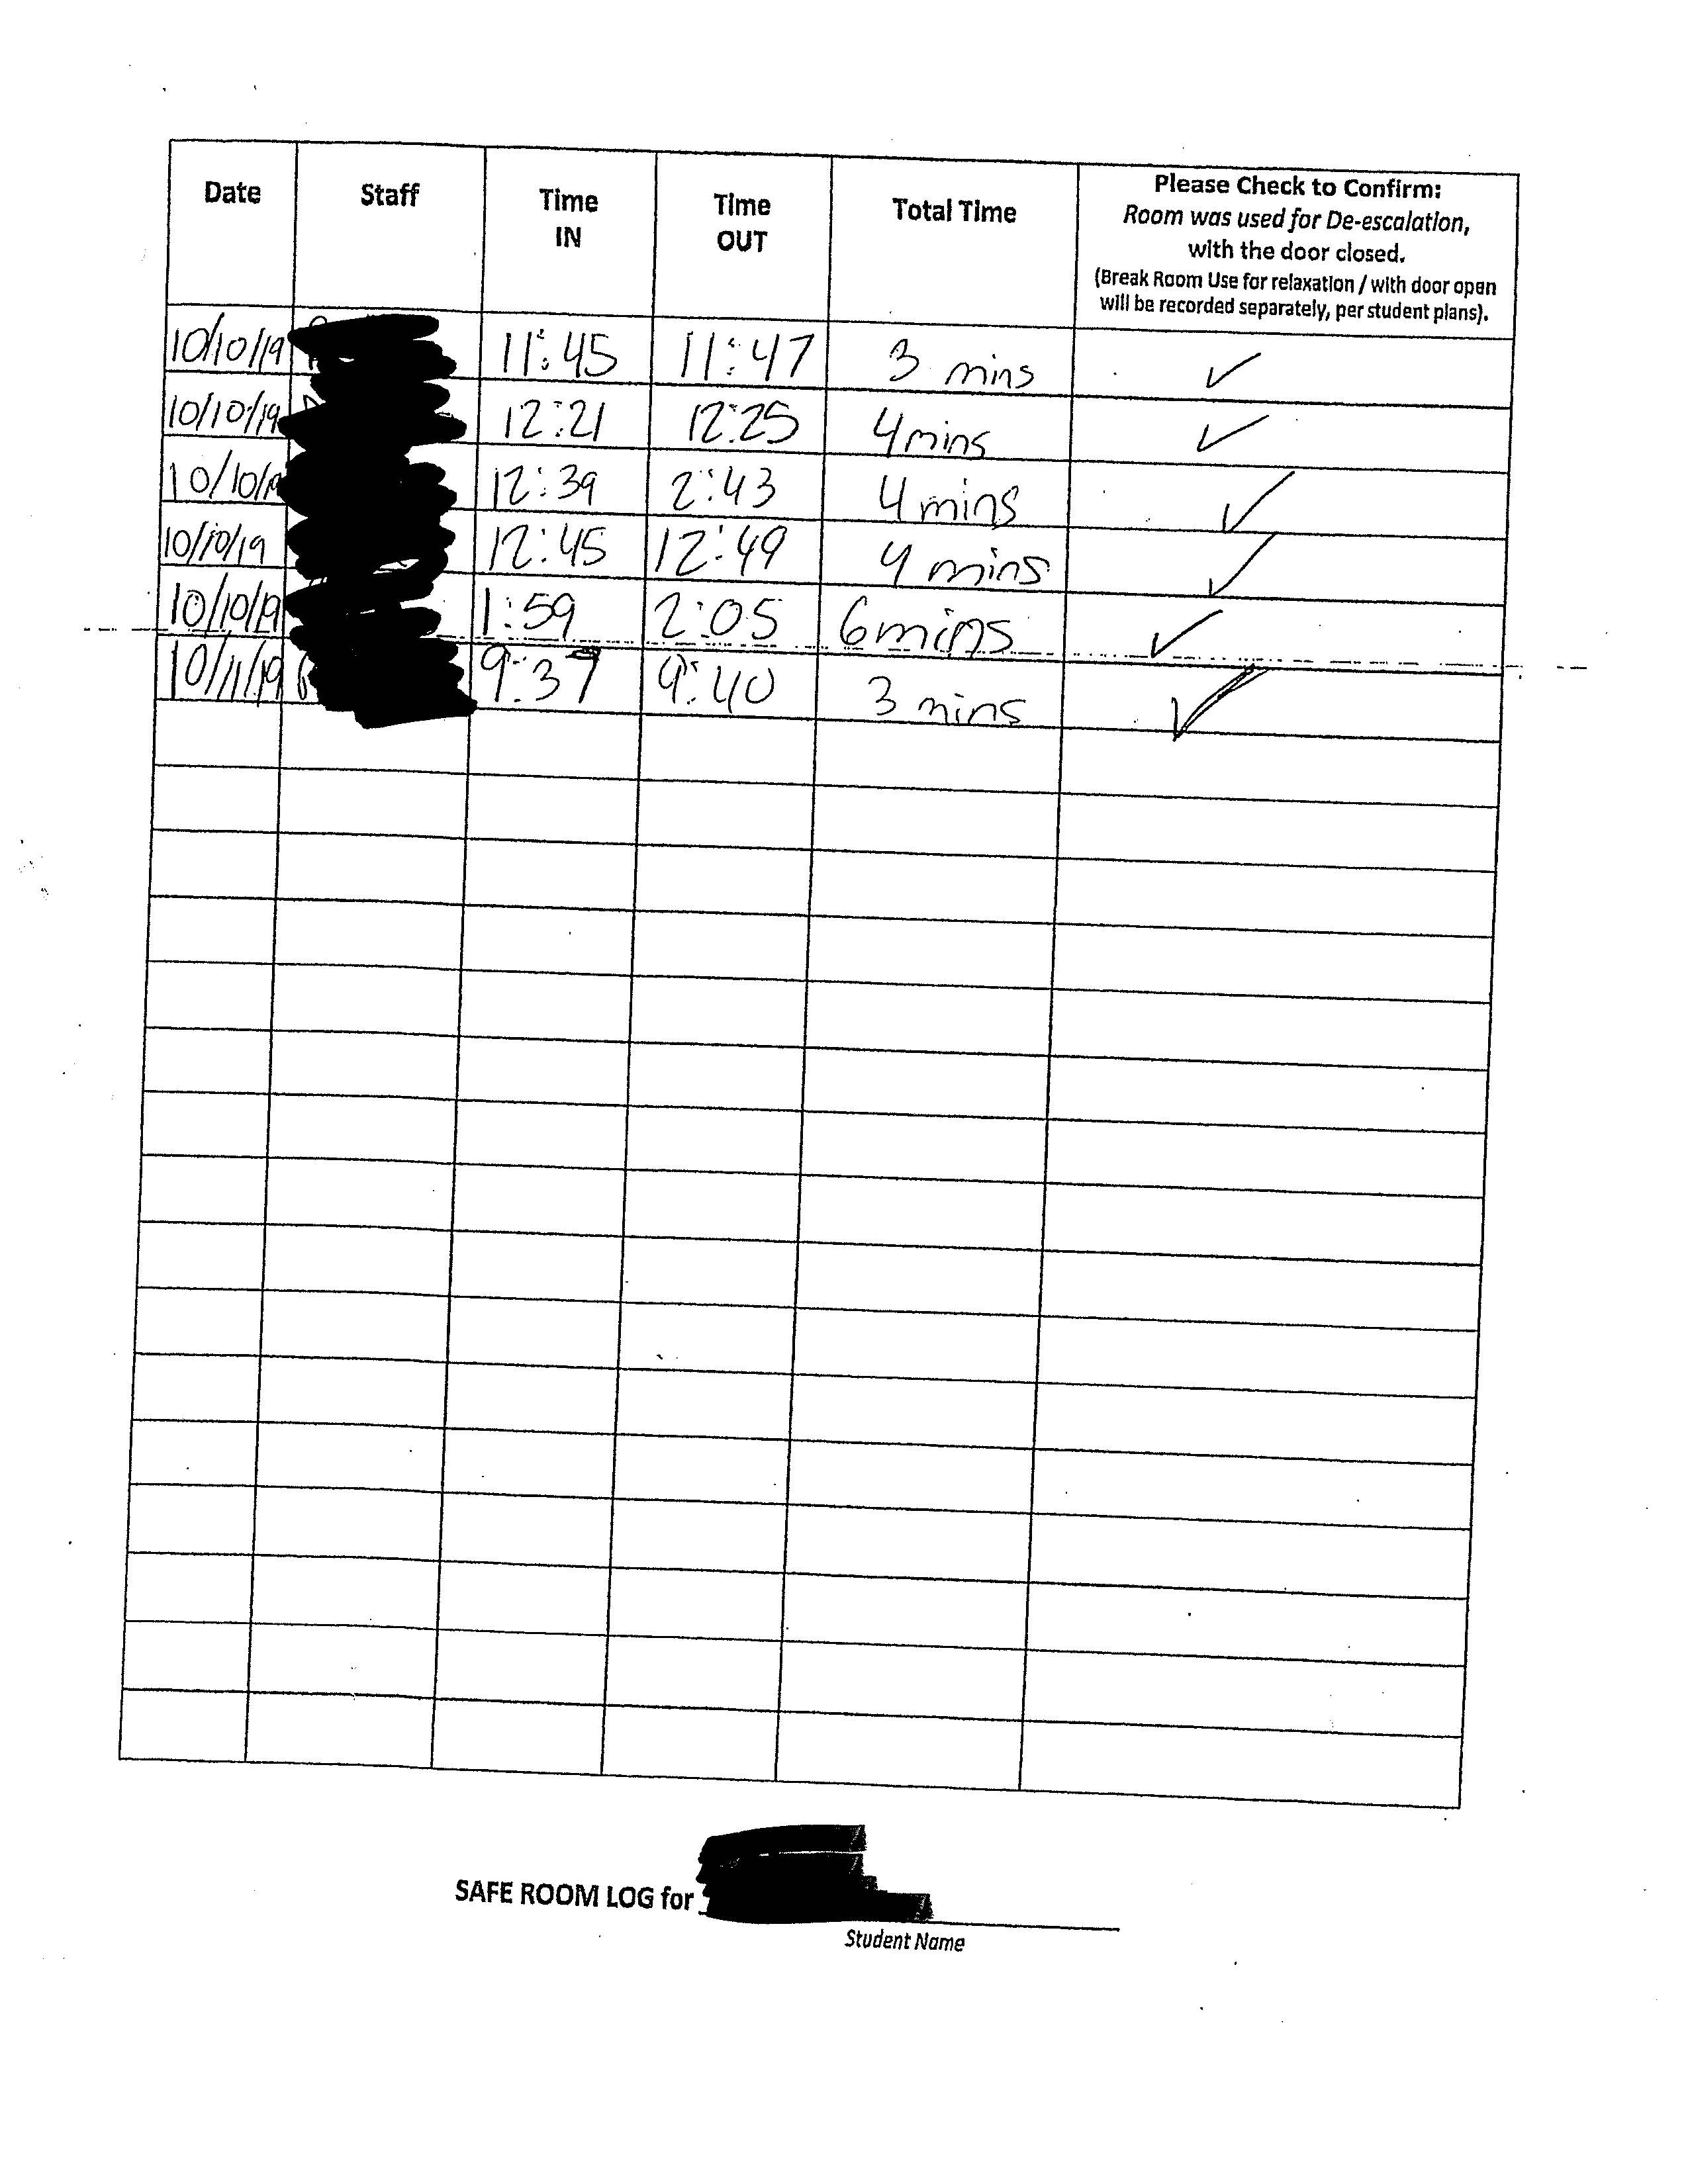 Date Staff Time IN Time OUT Total Time Please Check to Confirm:
Room was used for De-escalation,
with the door closed.
(Break Room Use for relaxation / with door open
will be recorded separately, per student plans).
10/10/19 11:45 11:47 3 mins ✓
10/10/19 12:21 12:25 4 mins ✓
10/10/19 12:39 2:43 4 mins ✓
10/10/19 12:45 12:49 4 mins ✓
10/10/19 1:59 2:05 6 mins ✓
10/11/19 9:37 9:40 3 mins ✓
SAFE ROOM LOG for
Student Name